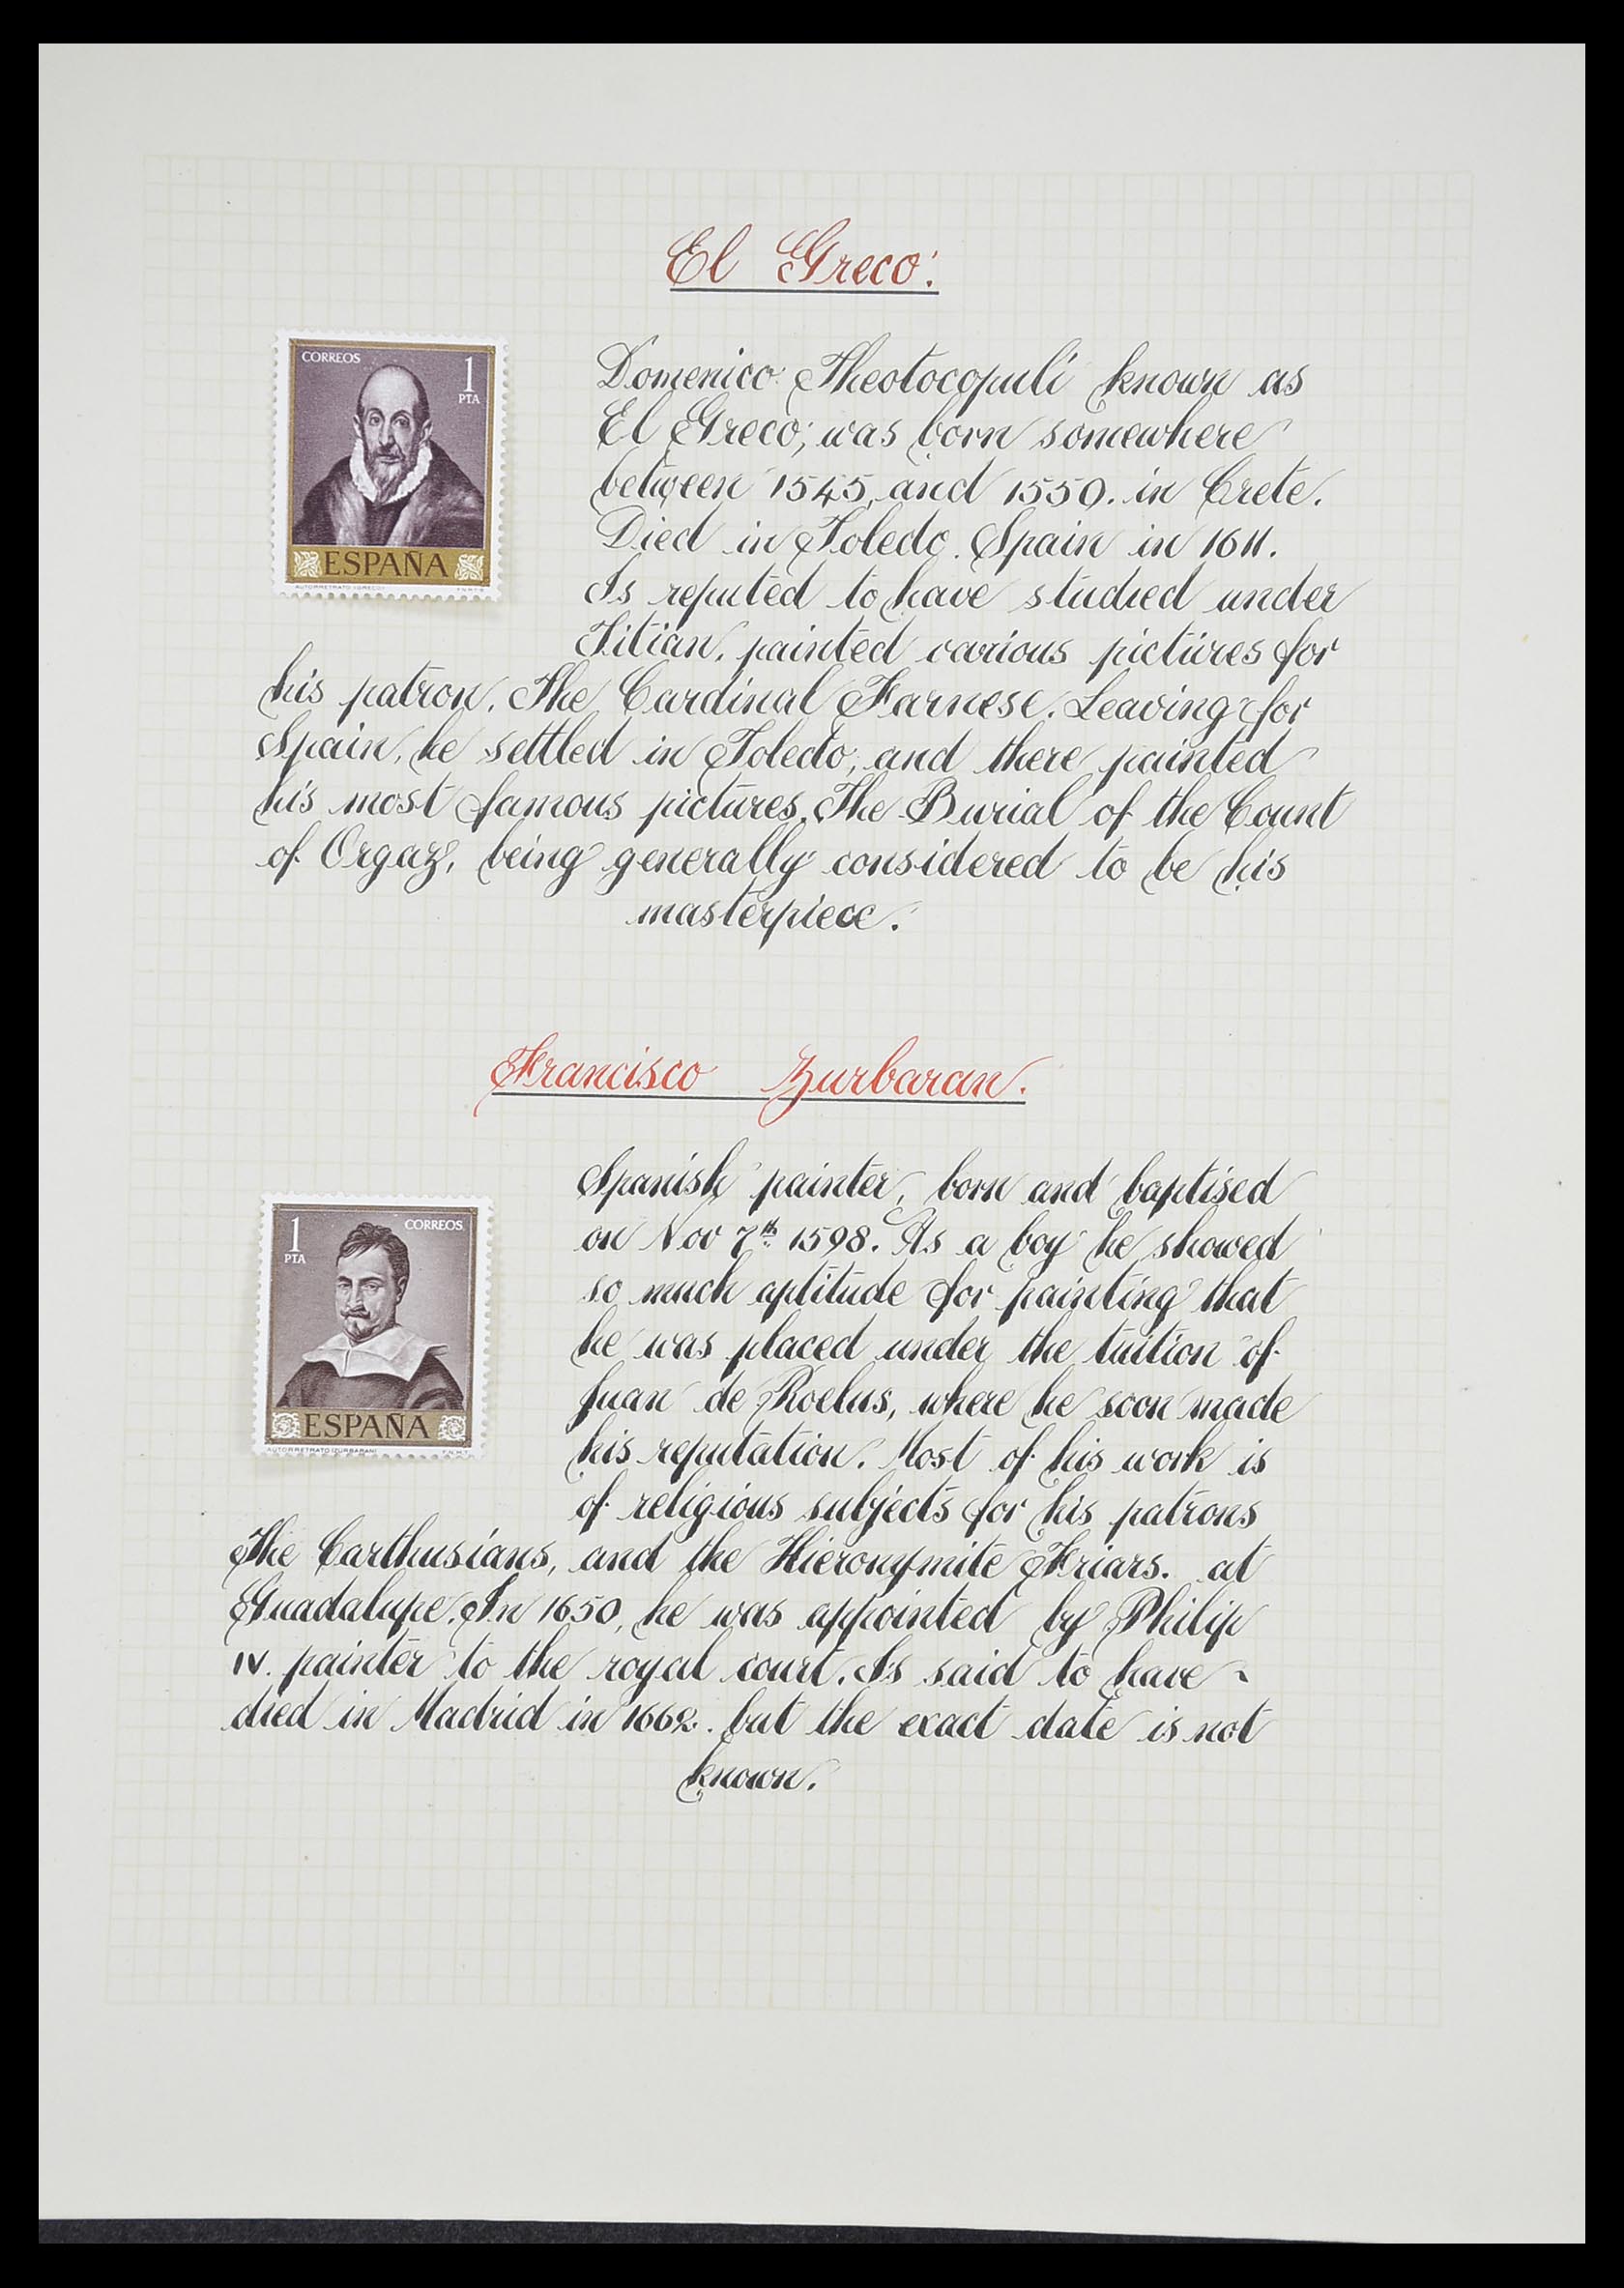 El Greco.
CORREOS
1
PTA
ESPAÑA
AUTORRETRATO (GRECO)
F.N.M.T.
Domenico Theotocopuli known as
El Greco, was born somewhere
between 1545, and 1550. in Crete.
Died in Toledo. Spain in 1611.
Is reputed to have studied under
Titian, painted various pictures for
his patron, The Cardinal Farnese. Leaving for
Spain, he settled in Toledo, and there painted
his most famous pictures, The Burial of the Count
of Orgaz, being generally considered to be his
masterpiece.
Francisco Zurbaran.
1
PTA
CORREOS
ESPAÑA
AUTORRETRATO (ZURBARAN)
F.N.M.T.
Spanish painter, born and baptised
on Nov 7th 1598. As a boy he showed
so much aptitude for painting that
he was placed under the tuition of
Juan de Roelus, where he soon made
his reputation. Most of his work is
of religious subjects for his patrons
The Carthusians, and the Hieronymite Friars. at
Guadalupe. In 1650, he was appointed by Philip
IV. painter to the royal court. Is said to have
died in Madrid in 1662. but the exact date is not
known.